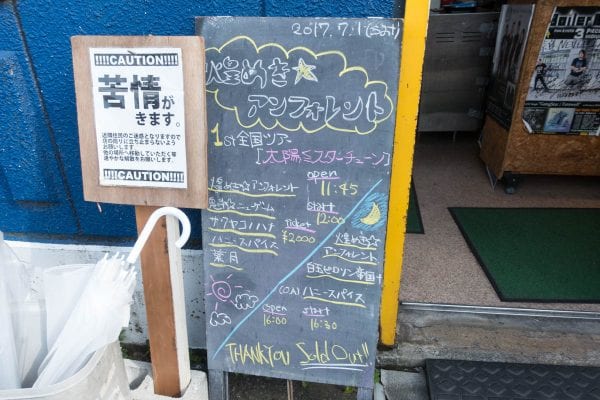 !!!!CAUTION!!!!
苦情が
きます。
近隣住民のご迷惑となりますので
店の周りに立ち止まらないよう
お願いします
他の場所へ移動していただく等
速やかな解散をお願いします。
!!!!CAUTION!!!!
2017.7.1(sat)
煌めき☆
アンフォレント
1st全国ツアー
[太陽ミスターチューン]
煌めき☆アンフォレント
ニューゲーム
サクヤコノハナ
ハニースパイス
葉月
open
11:45
start
12:00
ticket
¥2000
煌めき☆
アンフォレント
白玉ピロリン帝国+
(O.A)ハニースパイス
open
16:00
start
16:30
THANK YOU Sold Out!!
3